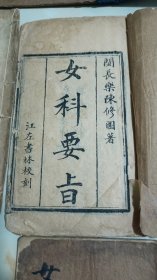 閩長樂陳修園著
女科要旨
江左書林校刻
女